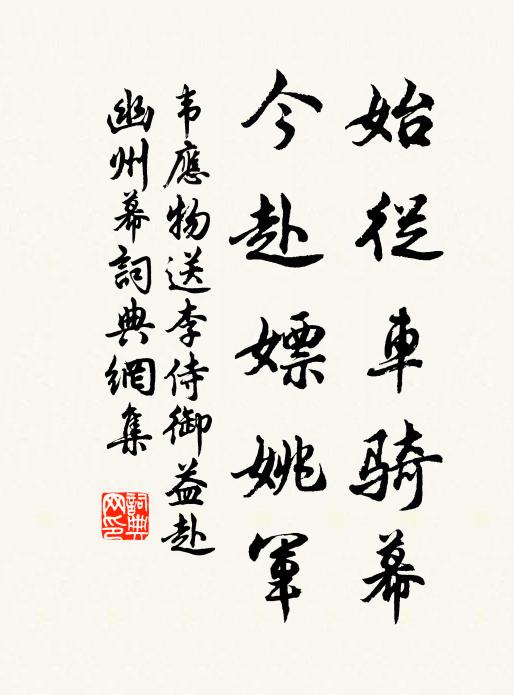 始從車騎幕
今赴嫖姚軍
韦應物送李侍御益赴
幽州幕詞典網集
詞典网印